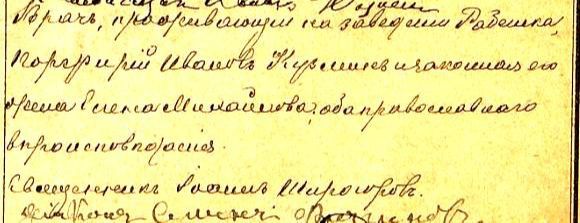 Врачъ, проживающій на заведеніи Рабенека,
Порфирій Ивановъ Кузминъ и законная его
жена Елена Михайлова, оба православнаго
вѣроисповѣданія.
Священникъ Іоаннъ Широгоровъ.
Діаконъ